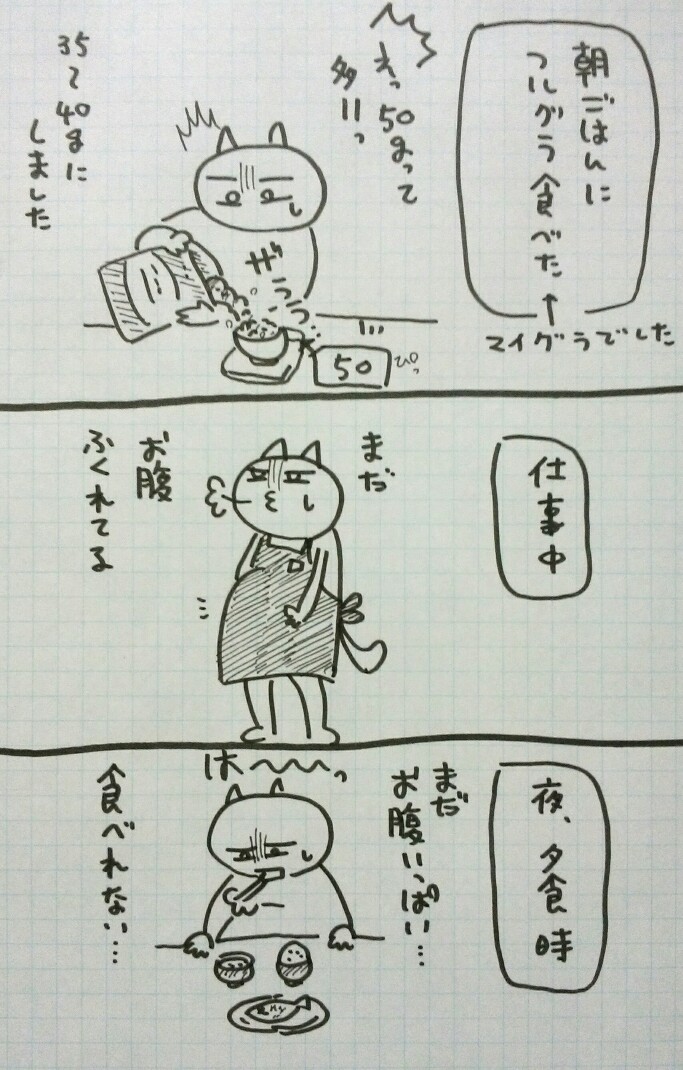 朝ごはんに
フルグラ食べた
↑
マイグラでした
えっ50gって
多ーっ
ザラララ
50
ぴっ
35~40gに
しました
仕事中
まだ
お腹
ふくれてる
夜、夕食時
まだ
お腹いっぱい…
は~~~っ
食べれない…